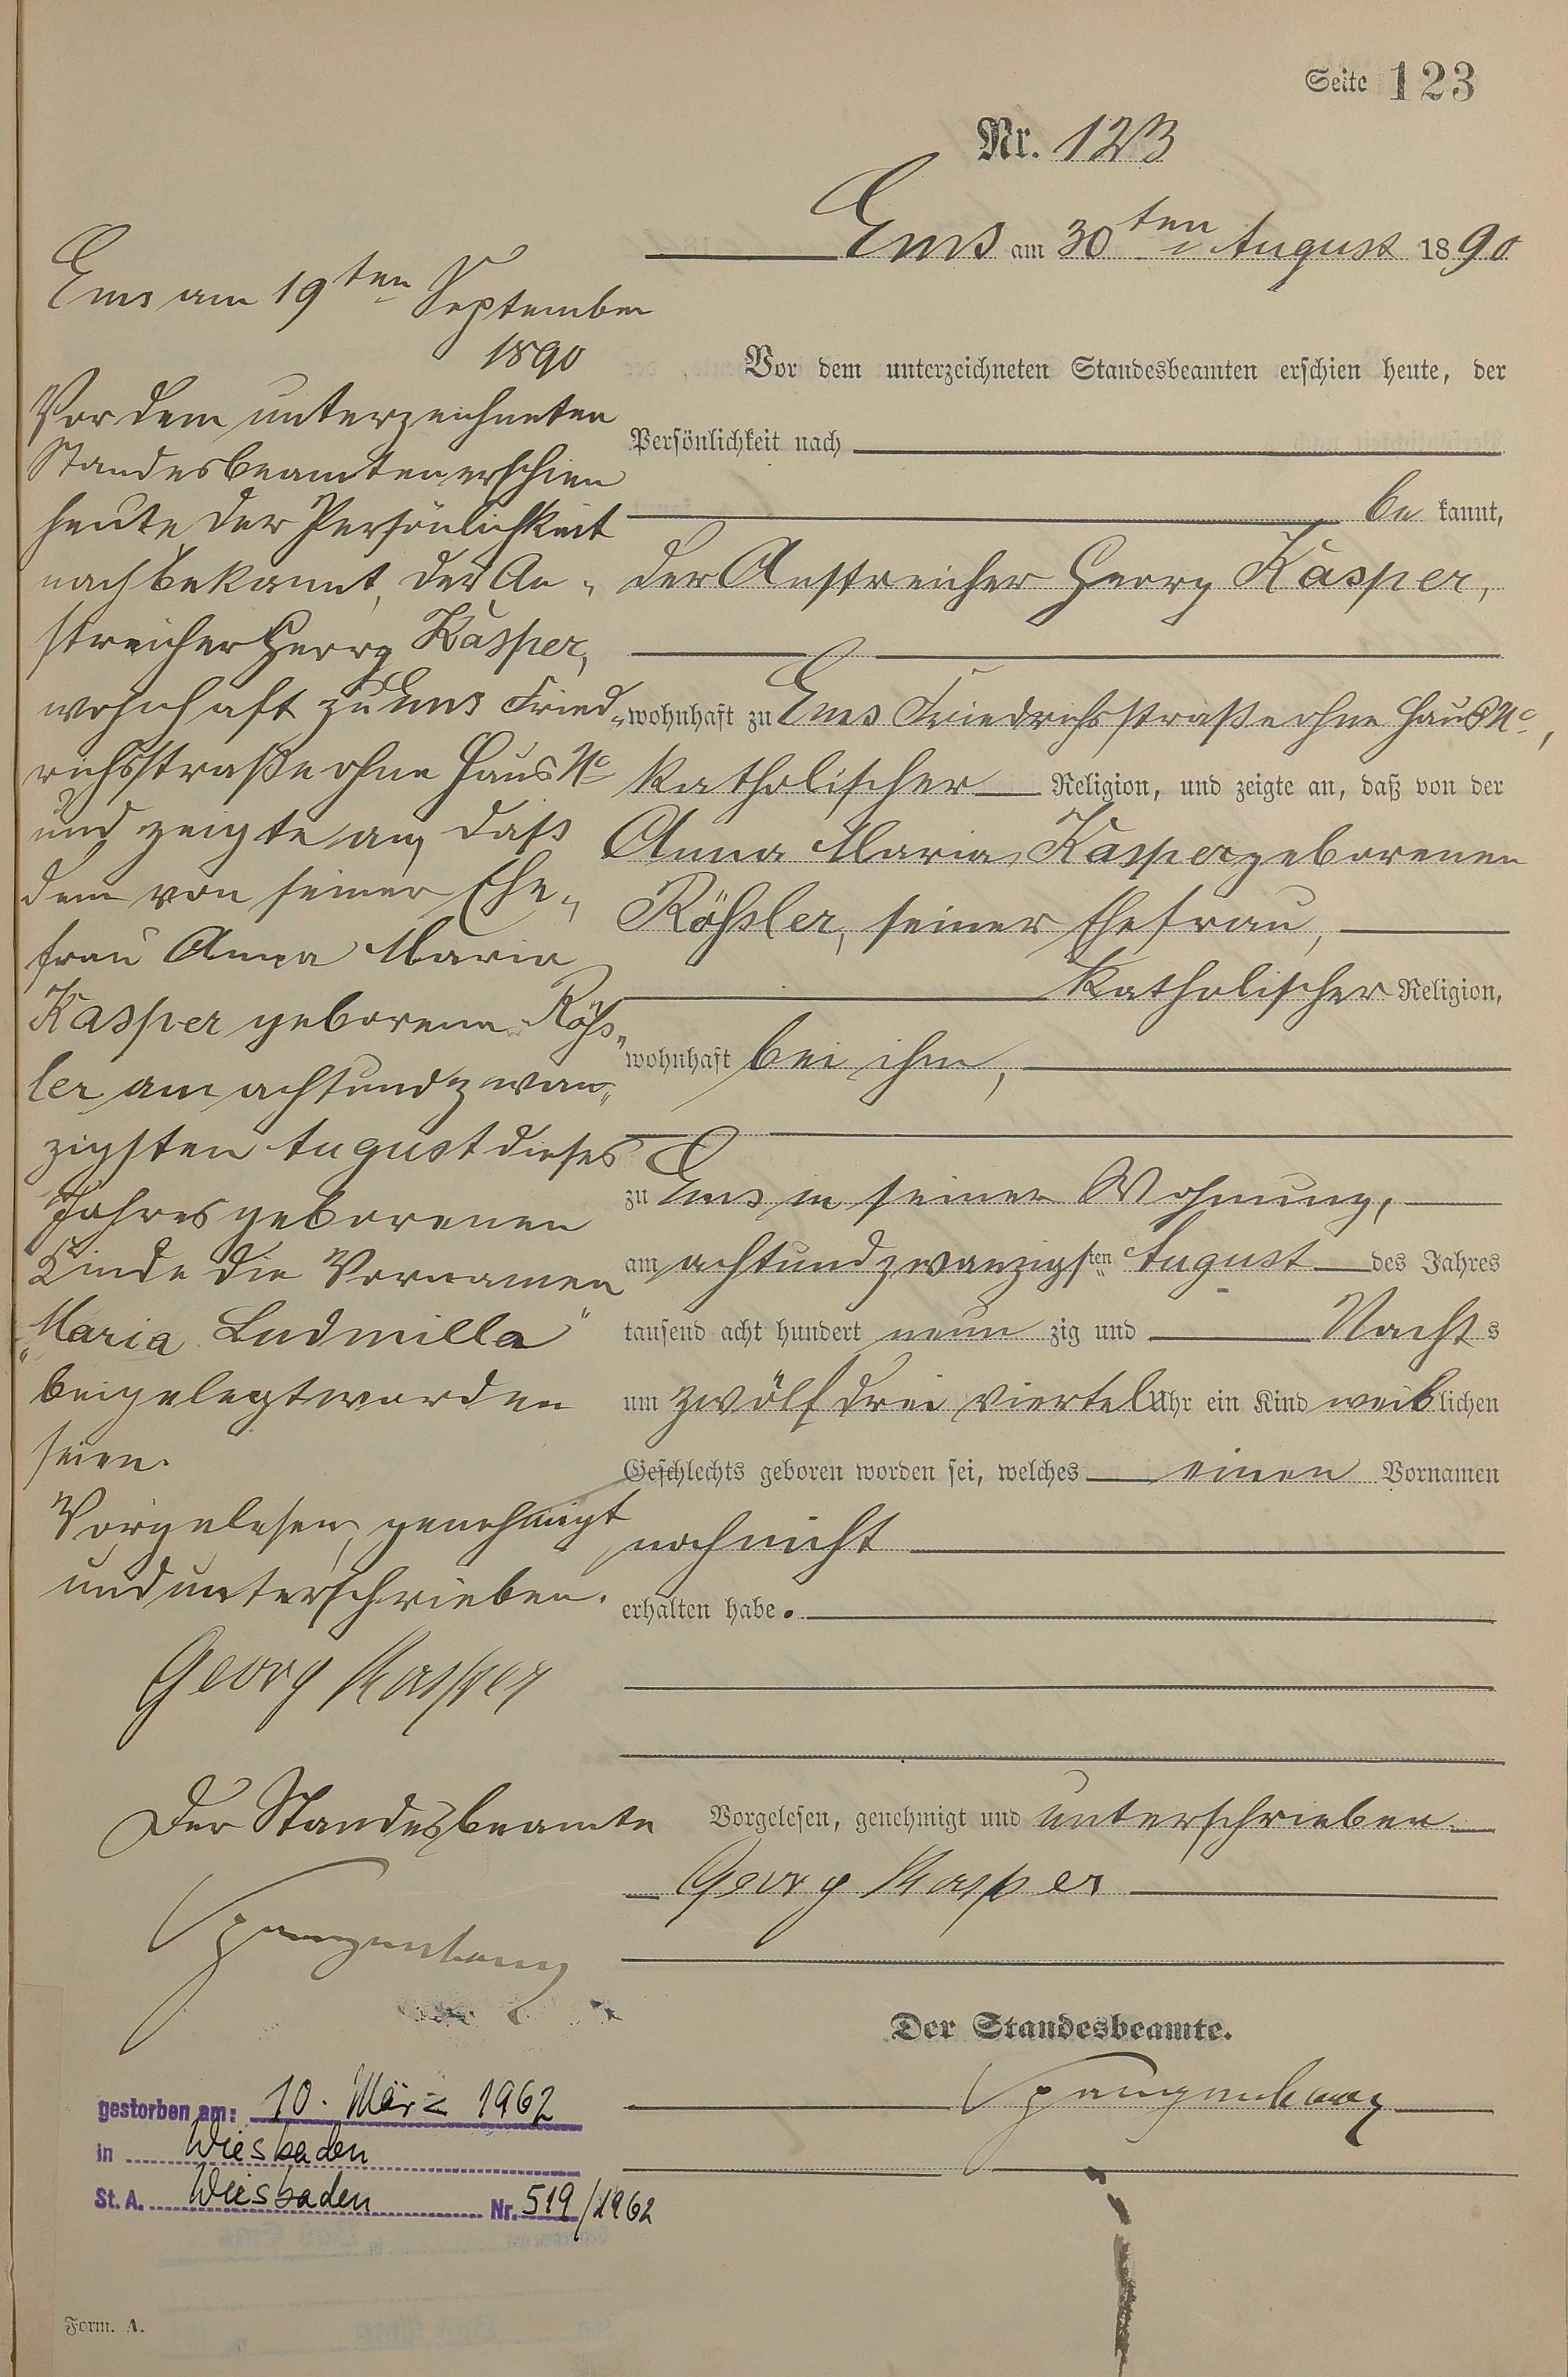 Seite 123
Nr. 123
Ems am 30ten August 1890
Vor dem unterzeichneten Standesbeamten erschien heute, der
Persönlichkeit nach
be kannt,
der Anstreicher Georg Kasper,
wohnhaft zu Ems Friedrichsstraße ohne Haus No,
katholischer Religion, und zeigte an, daß von der
Anna Maria Kasper geborenen
Rößler, seiner Ehefrau,
katholischer Religion,
wohnhaft bei ihm,
zu Ems in seiner Wohnung,
am achtundzwanzigsten August des Jahres
tausend acht hundert neun zig und Nacht s
um zwölf drei viertel Uhr ein Kind weiblichen
Geschlechts geboren worden sei, welches einen Vornamen
noch nicht
erhalten habe.
Vorgelesen, genehmigt und unterschrieben.
Georg Kasper
Der Standesbeamte.
Spangenberg
Ems am 19ten September
1890
Vor dem unterzeichneten
Standesbeamten erschien
heute der Persönlichkeit
nach bekannt, der An-
streicher Georg Kasper,
wohnhaft zu Ems Fried-
richsstraße ohne Haus No
und zeigte an, daß
dem von seiner Ehe-
frau Anna Maria
Kasper geborene Röß-
ler am achtundzwan-
zigsten August dieses
Jahres geborenen
Kinde die Vornamen
"Maria Ludmilla"
beigelegt worden
seien.
Vorgelesen, genehmigt
und unterschrieben.
Georg Kasper
Der Standesbeamte
Spangenberg
gestorben am: 10. März 1962
in Wiesbaden
St. A. Wiesbaden Nr. 519/1962
Form. A.